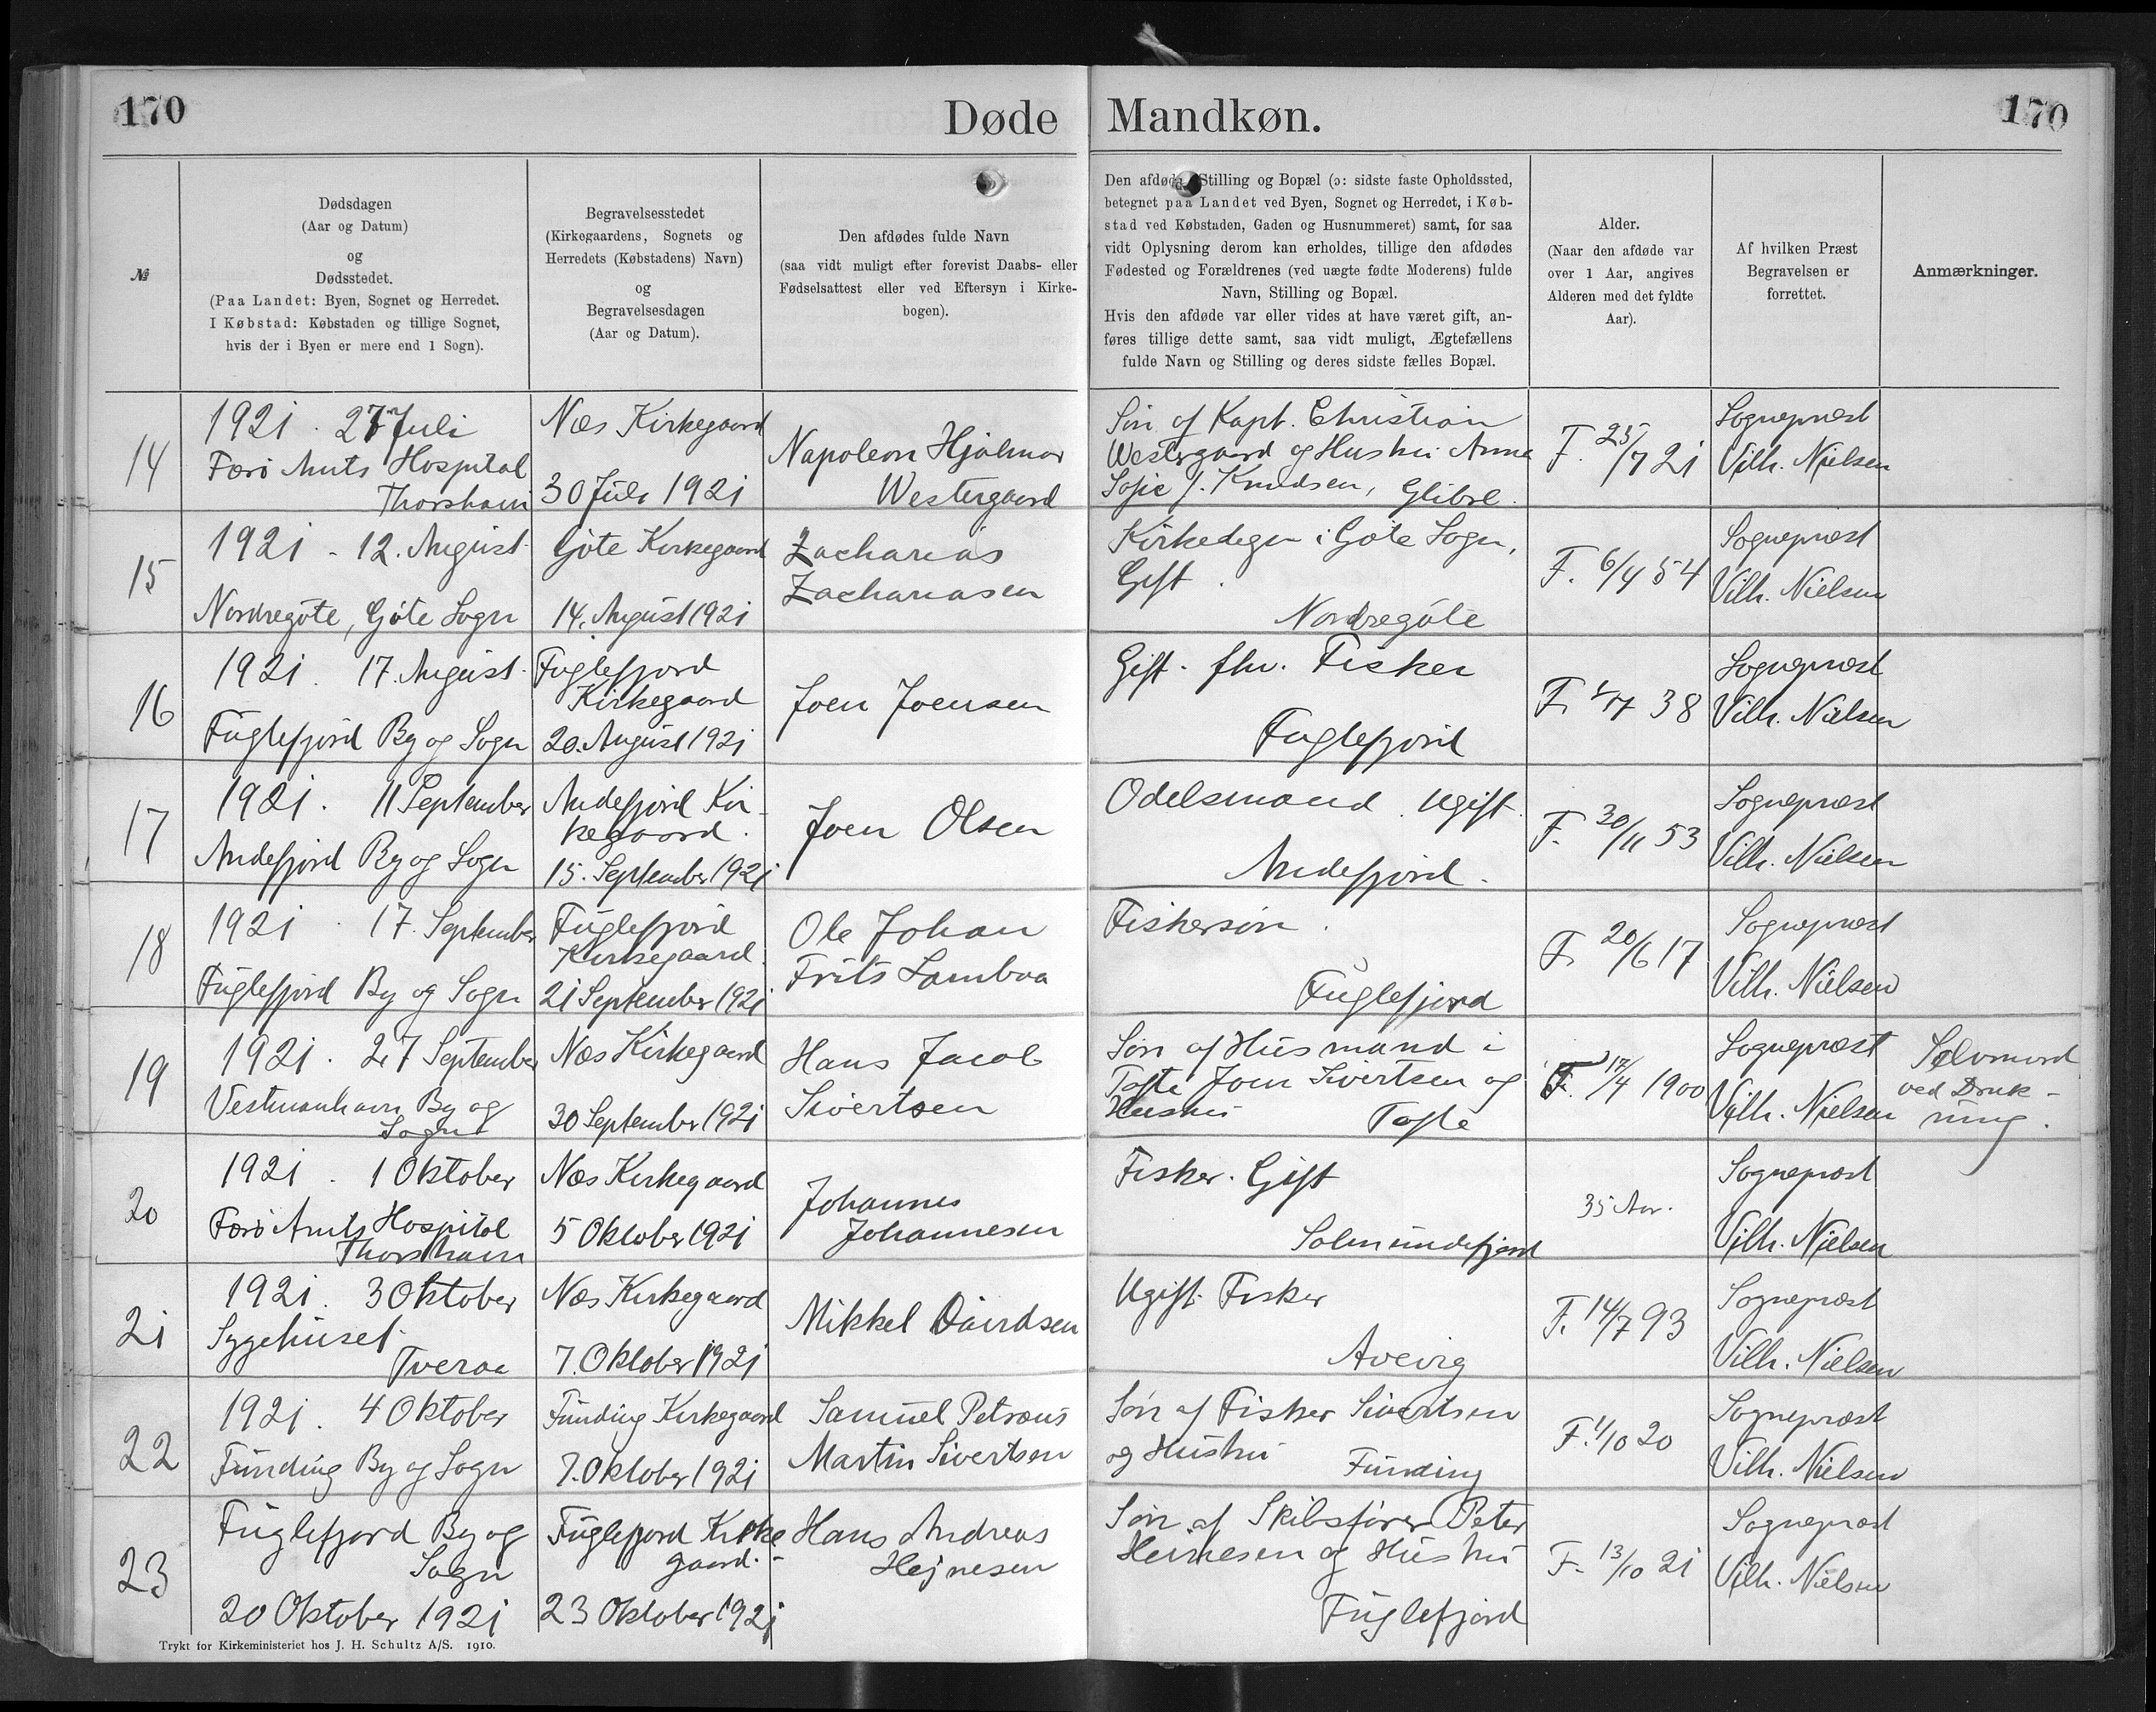 170
Døde
Mandkøn.
170
№
Dødsdagen
(Aar og Datum)
og
Dødsstedet.
(Paa Landet: Byen, Sognet og Herredet.
I Købstad: Købstaden og tillige Sognet,
hvis der i Byen er mere end 1 Sogn).
Begravelsesstedet
(Kirkegaardens, Sognets og
Herredets (Købstadens) Navn)
og
Begravelsesdagen
(Aar og Datum).
Den afdødes fulde Navn
(saa vidt muligt efter forevist Daabs- eller
Fødselsattest eller ved Eftersyn i Kirke-
bogen).
Den afdødes Stilling og Bopæl (ɔ: sidste faste Opholdssted,
betegnet paa Landet ved Byen, Sognet og Herredet, i Køb-
stad ved Købstaden, Gaden og Husnummeret) samt, for saa
vidt Oplysning derom kan erholdes, tillige den afdødes
Fødested og Forældrenes (ved uægte fødte Moderens) fulde
Navn, Stilling og Bopæl.
Hvis den afdøde var eller vides at have været gift, an-
føres tillige dette samt, saa vidt muligt, Ægtefællens
fulde Navn og Stilling og deres sidste fælles Bopæl.
Alder.
(Naar den afdøde var
over 1 Aar, angives
Alderen med det fyldte
Aar).
Af hvilken Præst
Begravelsen er
forrettet.
Anmærkninger.
14
1921 . 27 Juli
Færø Amts Hospital
Thorshavn
Næs Kirkegaard
30 Juli 1921
Napoleon Hjalmar
Westergaard
Søn af Kapt. Christian
Westergaard og Hustru Anna
Sofie f. Knudsen, Glibre.
F. 25/7 21
Sognepræst
Vilh. Nielsen
15
1921 - 12. August
Nordregøte, Gøte Sogn
Gøte Kirkegaard
14. August 1921
Zacharias
Zachariasen
Kirkedegn i Gøte Sogn,
Gift .
Nordregøte
F. 6/4 54
Sognepræst
Vilh. Nielsen
16
1921 . 17. August.
Fuglefjord By og Sogn
Fuglefjord
Kirkegaard
20. August 1921
Joen Joensen
Gift. fhv. Fisker
Fuglefjord
F. 38
Sognepræst
Vilh. Nielsen
17
1921 . 11 September
Andefjord By og Sogn
Andefjord Kir-
kegaard.
15. September 1921
Joen Olsen
Odelsmand . Ugift.
Andefjord.
F. 30/11 53
Sognepræst
Vilh. Nielsen
18
1921 . 17. September
Fuglefjord By og Sogn
Fuglefjord
Kirkegaard.
21 September 1921
Ole Johan
Frits Lamboa
Fiskersøn .
Fuglefjord
F. 20/6 17
Sognepræst
Vilh. Nielsen
19
1921 . 27 September
Vestmanhavn By og
Sogn
Næs Kirkegaard
30 September 1921
Hans Jacob
Sivertsen
Søn af Husmand i
Tofte Joen Sivertsen og
Hustru Tofte
F. 17/4 1900
Sognepræst
Vilh. Nielsen
Selvmord
ved Druk-
ning.
20
1921 . 1 Oktober
Færø Amts Hospital
Thorshavn
Næs Kirkegaard
5 Oktober 1921
Johannes
Johannesen
Fisker. Gift
Salmundefjord
35 Aar.
Sognepræst
Vilh. Nielsen
21
1921 . 3 Oktober
Sygehuset.
Tveraa
Næs Kirkegaard
7. Oktober 1921
Mikkel Davidsen
Ugift. Fisker
Avevig
F. 14/7 93
Sognepræst
Vilh. Nielsen
22
1921 . 4 Oktober
Funding By og Sogn
Funding Kirkegaard
7. Oktober 1921
Samuel Petræus
Martin Sivertsen
Søn af Fisker Sivertsen
og Hustru Funding
F. 1/10 20
Sognepræst
Vilh. Nielsen
23
Fuglefjord By og
Sogn
20 Oktober 1921
Fuglefjord Kirke
gaard.-
23 Oktober 1921
Hans Andreas
Hejnesen
Søn af Skibsfører Peter
Heinesen og Hustru
Fuglefjord
F. 13/10 21
Sognepræst
Vilh. Nielsen
Trykt for Kirkeministeriet hos J. H. Schultz A/S. 1910.